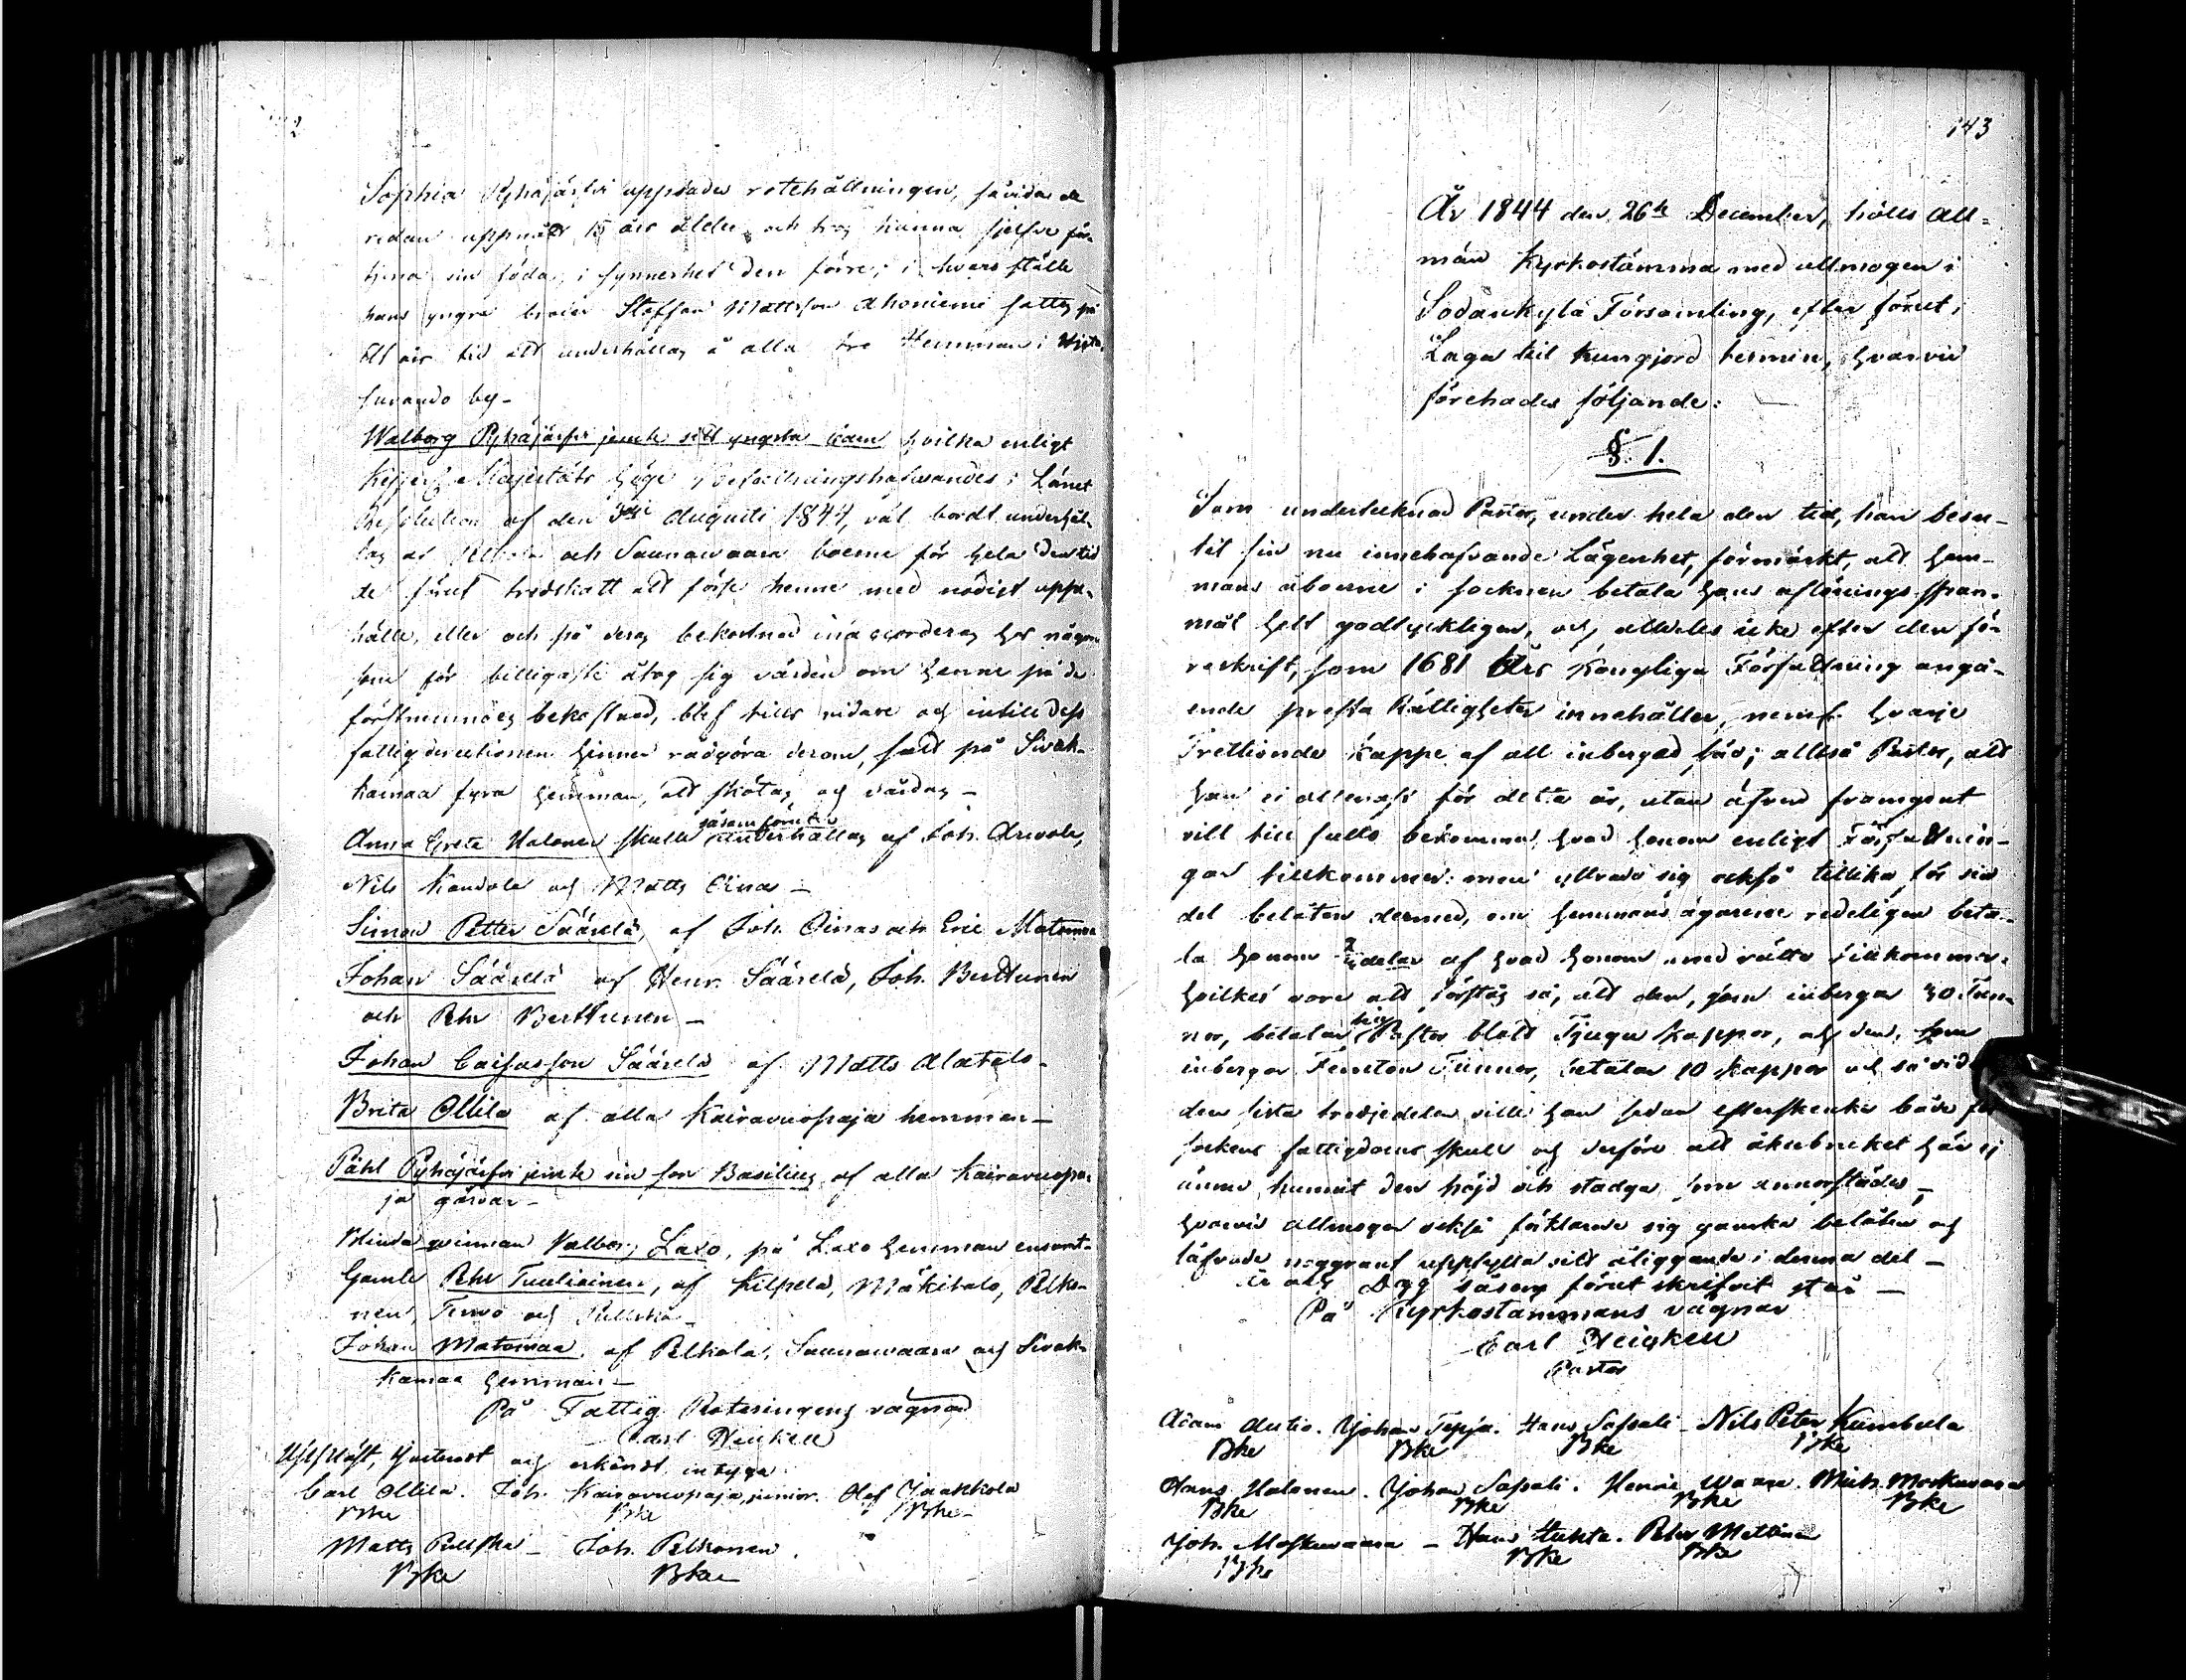 Sophia Pyhäjärfvi uppsades rotehållningen, såvida de
redan uppnått 15 års ålder och tros kunna sjelfve för-
tjena sin föda, i synnerhet den förre; i hvars ställe
hans yngre broder Staffan Mattsson Ahoniemi sattes på
Ett års tid att underhållas å alla tre Hemman i
suvando by-
Walborg Pyhäjärfvi jemte sitt yngsta barn hvilka enligt
Majestäts Höge Befallningshafwandes i Länet
Resolution af den Augusti 1844, väl bordt underhål-
las af Pelkola och Saunawaara boerne för hela den tid
de förut tredskatt att förse henne med nödigt uppe-
hälle, eller och på deras bekostnad inaccorderas hos någon
som för billigaste åtog sig vården om henne på de
förstnämndes bekostnad, blef tills vidare och intilldess
fattigdirectionen hinner rådgöra derom, satt på Sivak-
kamaa fyra hemman, att skötas och vårdas -
såsom förut
Anna Greta Halonen skulle underhållas af Joh. Arwola,
Nils Kandola och Matts Oinas -
Simon Petter Säärelä, af Joh. Oinas och Eric Matomaa
Johan Säärelä af Henr. Säärelä, Joh. Berttunen
och Pehr Berttunen -
Johan Caisasson Säärelä af Matts Alatalo -
Brita Ollila af alla Kairavuopaja hemman -
Påhl Pyhäjärfvi jemte sin son Basilius af alla Kairavuopa-
ja gårdar -
Blinda qvinnan Valborg Laxo, på Laxo hemman ensamt -
Gamle Pehr Tuuliainen, af Kilpelä, Mäkitalo, Pelko-
nen, Termo och Pulska -
Johan Matomaa, af Pelkola, Saunawaara och Sivak-
kamaa hemman -
På Fattig Roteringens vägnar
Carl Heickell
Uppläst, justerat och erkändt, intyga
Carl Ollila. Joh. Kairavuopaja, junior. Olof Jaakkola
Bke Bke Bke -
Matts Pulska - Joh. Pelkonen.
Bke Bke
143
År 1844 den 26te December, hölls All-
män Kyrkostämma med allmogen i
Sodankylä Församling, efter förut,
Laga tid kungjord termin, hvarvid
förehades följande:
§. 1.
Som undertecknad Pastor, under hela den tid, han besu-
tit sin nu innehafvande Lägenhet, förmärkt, att hem-
mans åboerne i socknen betala hans aflönings span-
mål helt godtyckligen, och alldeles icke efter den fö-
reskrift, som 1681 Års Kongliga Författning angå-
ende presta Rättigheter innehåller, neml. hvarje
Trettionde kappe af all inbergad säd; alltså Pastor, att
han ei allenast för detta år, utan äfven framgent
vill till fullo bekomma hvad honom enligt Författnin-
gar tillkommer: men yttrade sig också tillika för sin
del belåten dermed, om hemmans ägarene redeligen beta-
la honom 2/3 delar af hvad honom med rätta tillkommer.
hvilket vore att förstås så, att den, som inbergar 30 Tun-
nor, betalar till Pastor blott Tjugu kappor, och den, som
inbergar Femton Tunnor, betalar 10 kappor och så vid
den sista tredjedelen ville han sedan efterskänka både för
sockens fattigdoms skull och derföre att åkerbruket här ej
ännu hunnit den höjd och stadga som annorstädes -
hvarvid allmogen också förklarade sig ganska belåten och
låfvade noggrant uppfylla sitt åliggande i denna del -
År och Dag såsom förut skrifvit står -
På Kyrkostämmans vägnar
Carl Heickell
Pastor
Adam Autio. Johan Seppä. Hans Sassali - Nils Peter Kumbula
Bke Bke Bke Bke
Hans Halonen. Johan Sassali. Henric Waara. Mich. Moskuwaara
Bke Bke Bke Bke
Joh. Moskuwaara - Hans Huhta. Pehr Mattinen
Bke Bke Bke